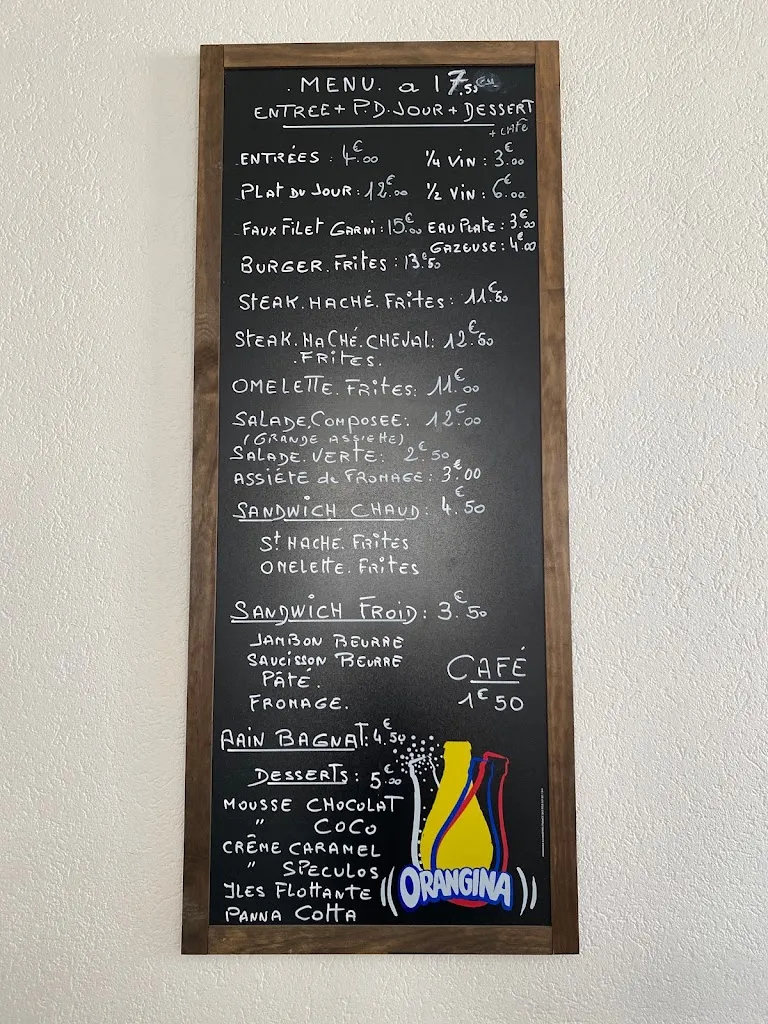 . MENU. a 17.50
ENTREE + P.D.JOUR + DESSERT
+ CAFÉ
ENTRÉES : 4€.00
1/4 VIN : 3€.00
PLAT DU JOUR : 12€.00
1/2 VIN : 6€.00
FAUX FILET GARNI : 15€.00
EAU PLATE : 3€.00
GAZEUSE : 4€.00
BURGER. FRITES : 13€.50
STEAK. HACHÉ. FRITES : 11€.50
STEAK. HACHÉ. CHEVAL : 12€.50
. FRITES.
OMELETTE. FRITES : 11€.00
SALADE. COMPOSEE : 12€.00
(GRANDE ASSIETTE)
SALADE. VERTE : 2€.50
ASSIÉTE de FROMAGE : 3€.00
SANDWICH CHAUD : 4€.50
St HACHÉ. FRITES
OMELETTE. FRITES
SANDWICH FROID : 3€.50
JAMBON BEURRE
SAUCISSON BEURRE
PÂTÉ.
FROMAGE.
CAFÉ
1€50
PAIN BAGNAT : 4€.50
DESSERTS : 5€.00
MOUSSE CHOCOLAT
" COCO
CRÊME CARAMEL
" SPECULOS
ILES FLOTTANTE
PANNA COTTA
ORANGINA